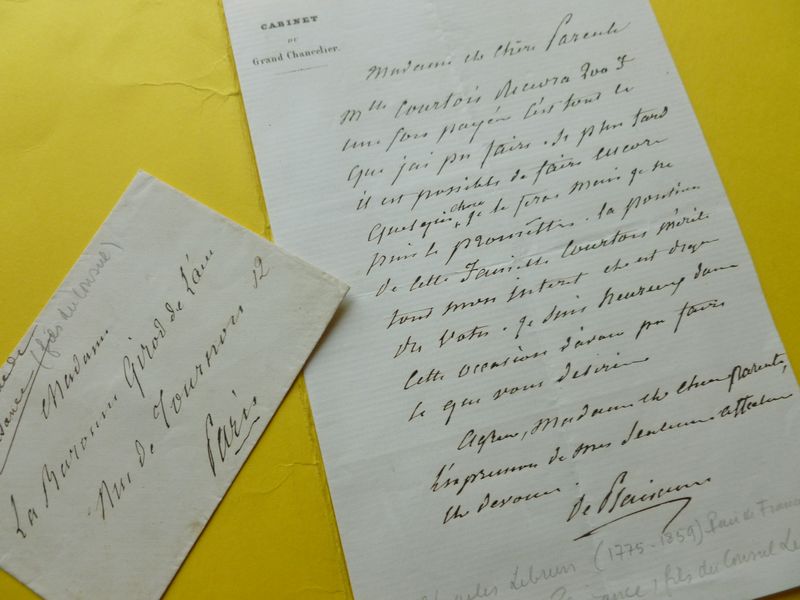 CABINET
DU
Grand Chancelier.
Madame et chère Parente
Mlle Courtois recevra 200 f
une fois payée c'est tout ce
que j'ai pu faire. Si plus tard
il est possible de faire encore
quelque chose, je le ferai mais je ne
puis le promettre. la position
de cette famille Courtois mérite
tout mon intérêt elle est digne
du votre. je suis heureux dans
cette occasion d'avoir pu faire
ce que vous désiriez
Agréez, Madame et chère parente,
l'expression de mes sentimens affection
et dévoués.
de Plaisance
Charles Lebrun (1775-1859) Pair de France
Plaisance, fils du Consul Le
(fils du Consul)
Madame
La Baronne Girod de l'ain
Rue de Tournon 12
Paris